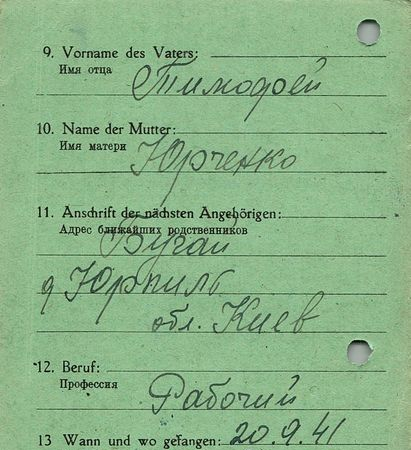 9. Vorname des Vaters:
Имя отца
Тимофей
10. Name der Mutter:
Имя матери
Юрченко
11. Anschrift der nächsten Angehörigen:
Адрес ближайших родственников
Бугай
д Юрпиль
обл. Киев
12. Beruf:
Профессия
Рабочий
13 Wann und wo gefangen: 20.9.41